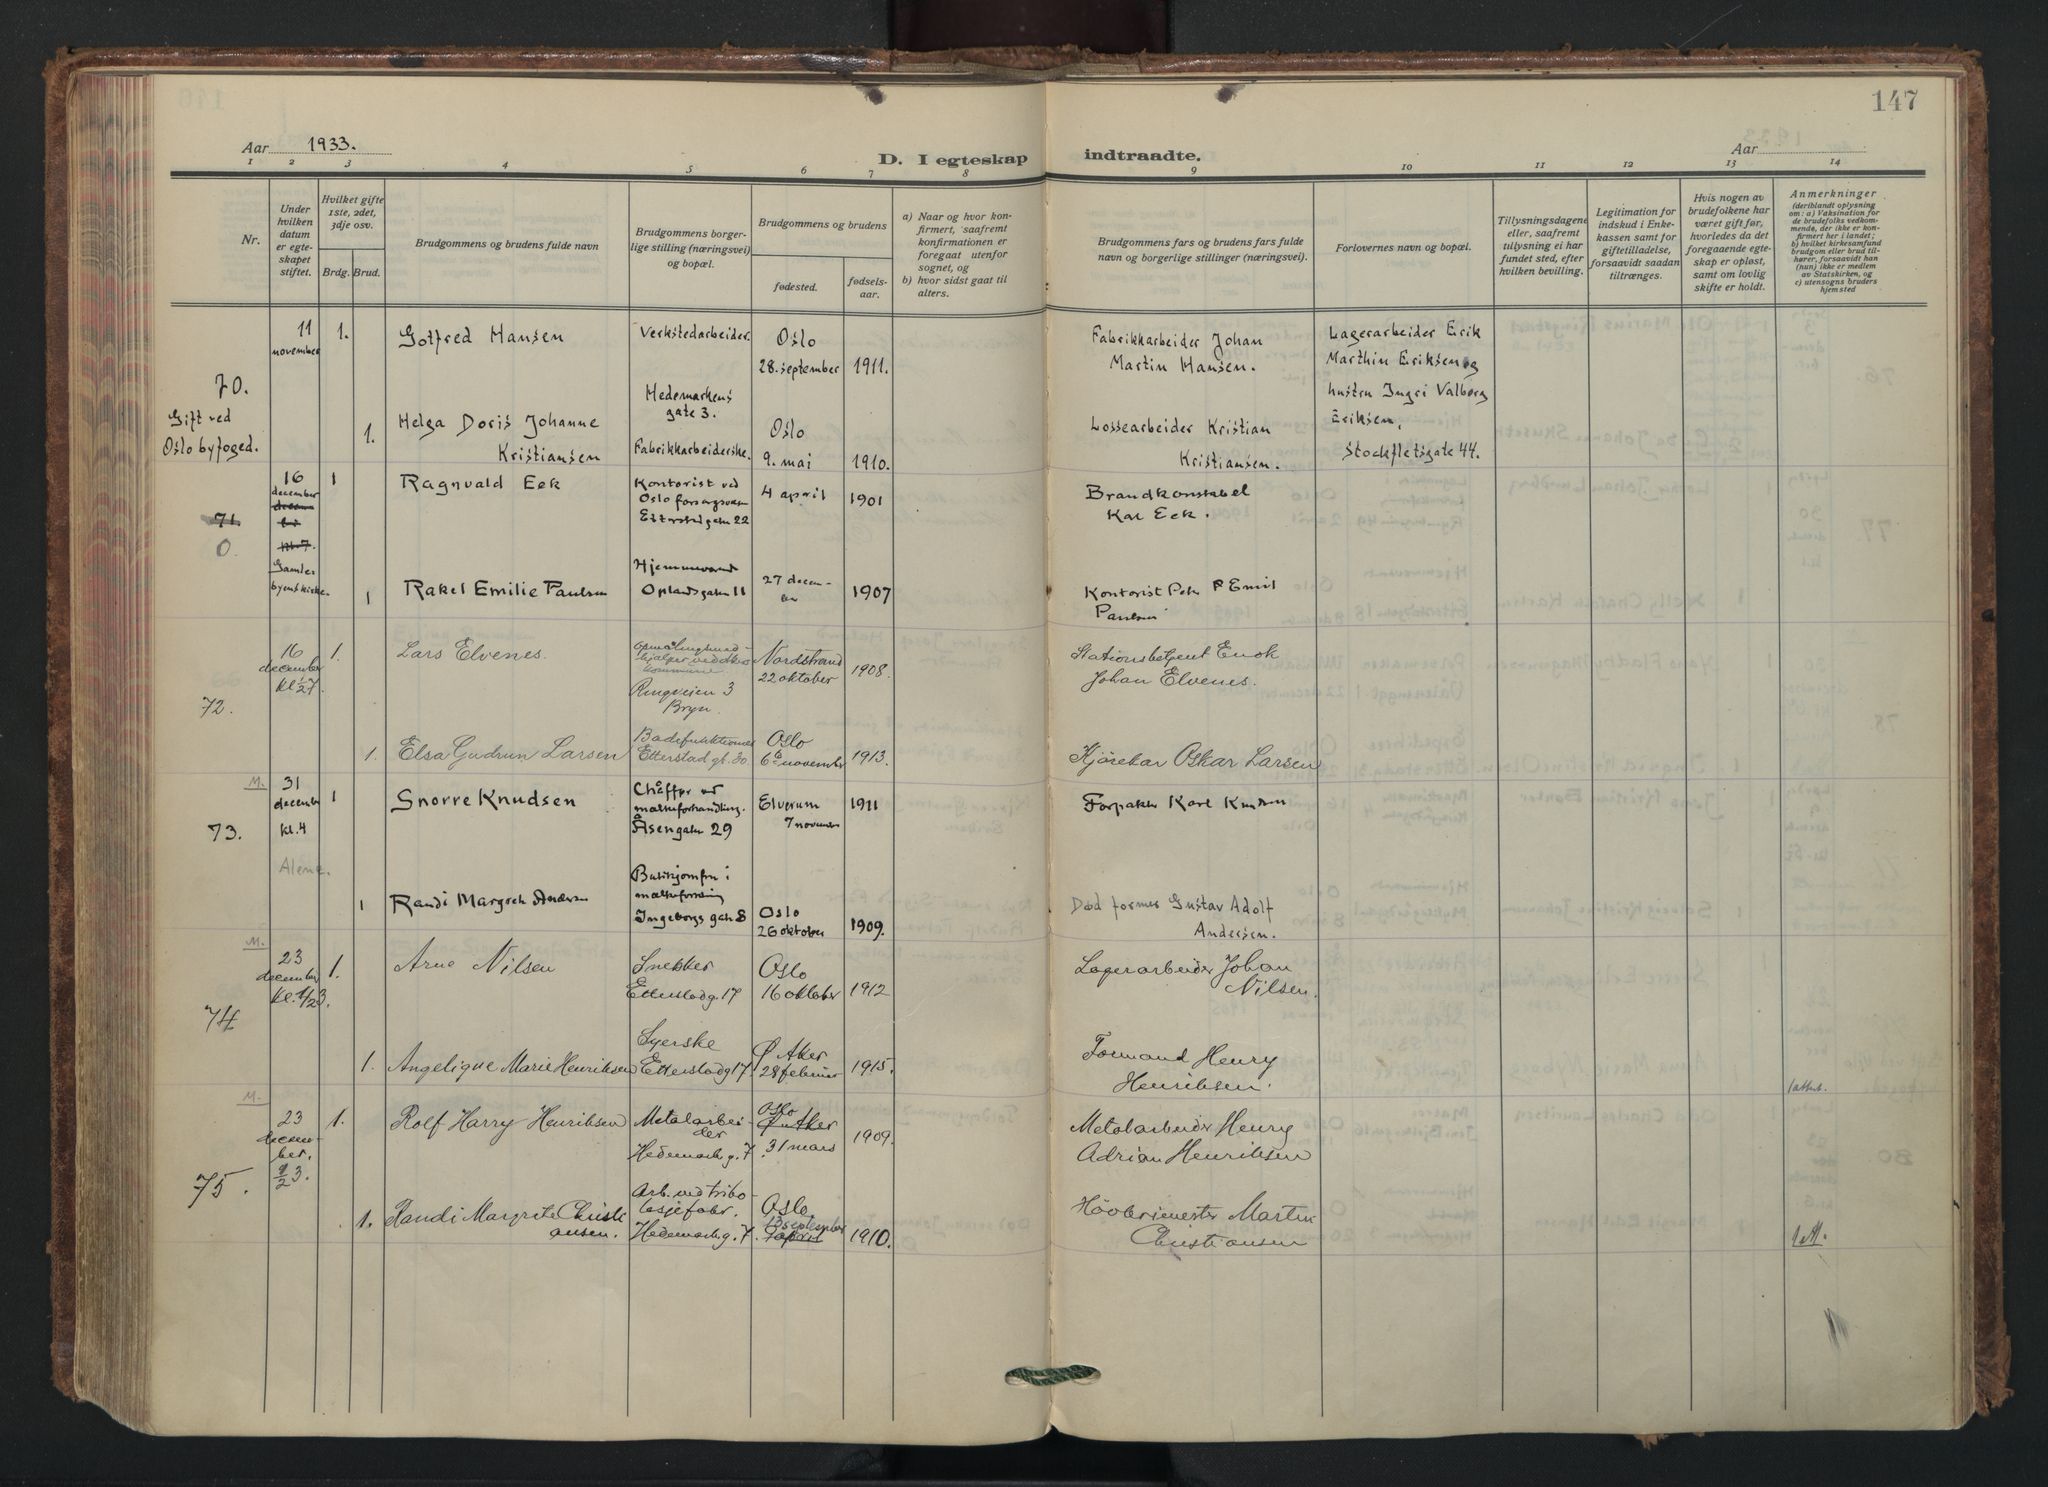 147
Aar 1933.
D. I egteskap indtraadte.
Aar
1 2 3 4 5 6 7 8 9 10 11 12 13 14
Nr.
Under hvilken datum er egteskapet stiftet.
Hvilket gifte 1ste, 2det, 3dje osv.
Brdg. Brud.
Brudgommens og brudens fulde navn
Brudgommens borgerlige stilling (næringsvei) og bopæl.
Brudgommens og brudens
fødested.
fødselsaar.
a) Naar og hvor konfirmert, saafremt konfirmationen er foregaat utenfor sognet, og
b) hvor sidst gaat til alters.
Brudgommens fars og brudens fars fulde navn og borgerlige stillinger (næringsvei).
Forlovernes navn og bopæl.
Tillysningsdagene eller, saafremt tillysning ei har fundet sted, efter hvilken bevilling.
Legitimation for indskud i Enkekassen samt for giftetilladelse, forsaavidt saadan tiltrænges.
Hvis nogen av brudefolkene har været gift før, hvorledes da det foregaaende egteskap er opløst, samt om lovlig skifte er holdt.
Anmerkninger
(deriblandt oplysning om: a) Vaksination for de brudefolks vedkommende, der ikke er konfirmert her i landet; b) hvilket kirkesamfund brudgom eller brud tilhører, forsaavidt han (hun) ikke er medlem av Statskirken, og c) utensogns bruders hjemsted
70.
Gift ved
Oslo byfoged.
11 november
1. Gotfred Hansen
Verkstedarbeider.
Hedemarkens gate 3.
Oslo
28. september 1911.
Fabrikkarbeider Johan
Martin Hansen.
Lagerarbeider Erik
Marthin Eriksen og
hustru Ingri Valborg
Eriksen,
Stockfletsgate 44.
1. Helga Doris Johanne
Kristiansen
Fabrikkarbeiderske.
Oslo
9. mai 1910.
Lossearbeider Kristian
Kristiansen.
71
0.
16 december
kl. 7.
Gamlebyens kirke.
1 Ragnvald Eek
Kontorist ved
Oslo forsorgsvesen
Etterstadgaten 22
4 april 1901
Brandkonstabel
Karl Eek.
1 Rakel Emilie Paulsen
Hjemmeværende
Oplandsgaten 11
27 december 1907
Kontorist Peter Emil
Paulsen
72.
16 december
kl 1/2 7.
1. Lars Elvenes.
Ringveien 3
Bryn.
Nordstrand
22 oktober 1908.
Stationsbetjent Enok
Johan Elvenes.
1. Elsa Gudrun Larsen
Etterstad gt. 30.
Oslo
6 november 1913.
Kjørekar Oskar Larsen
M.
73.
31 december
kl. 4
Alene.
1 Snorre Knudsen
Chåffør ved
melkeforhandling.
Åsengaten 29
Elverum
7 november 1911
Forpakter Karl Knudsen
1 Randi Margreth Andersen
Butikkjomfru i
melkeforretning
Ingeborgs gate 8
Oslo
26 oktober 1909.
Død former Gustav Adolf
Andersen.
M.
74
23 december
Kl. 1/2 3.
1. Arne Nilsen
Snekker
Etterstadg. 17
Oslo
16 oktober 1912
Lagerarbeider Johan
Nilsen.
1. Angelique Marie Henriksen
Syerske
Etterstadg 17.
Ø Aker
28 februar 1915.
Formand Henry
Henriksen.
1 attest.
M.
75.
23 december.
1/2 3.
1. Rolf Harry Henriksen
Metalarbeider
Hedemarkg. 7.
Oslo
Ø. Aker
31 mars 1909.
Metalarbeider Henry
Adrian Henriksen
1. Randi Margrete Christiansen.
Arb. ved tribotasjefabr.
Hedemarkg. 7.
Oslo.
13 september
7 april 1910.
Høvlerimester Martin
Christiansen
1 att.